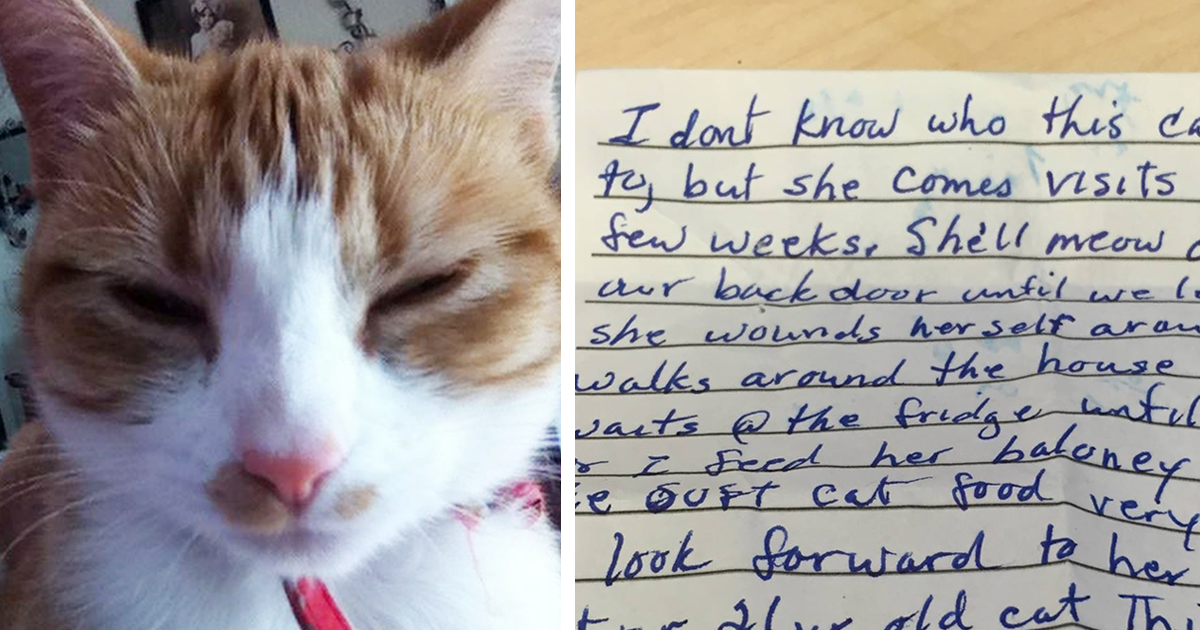 I dont know who this ca
to, but she comes visits
few weeks. She'll meow
our back door until we l
she wounds herself arou
walks around the house
waits @ the fridge until
r I feed her baloney
e soft cat food very
look forward to her
21 yr old cat Thi